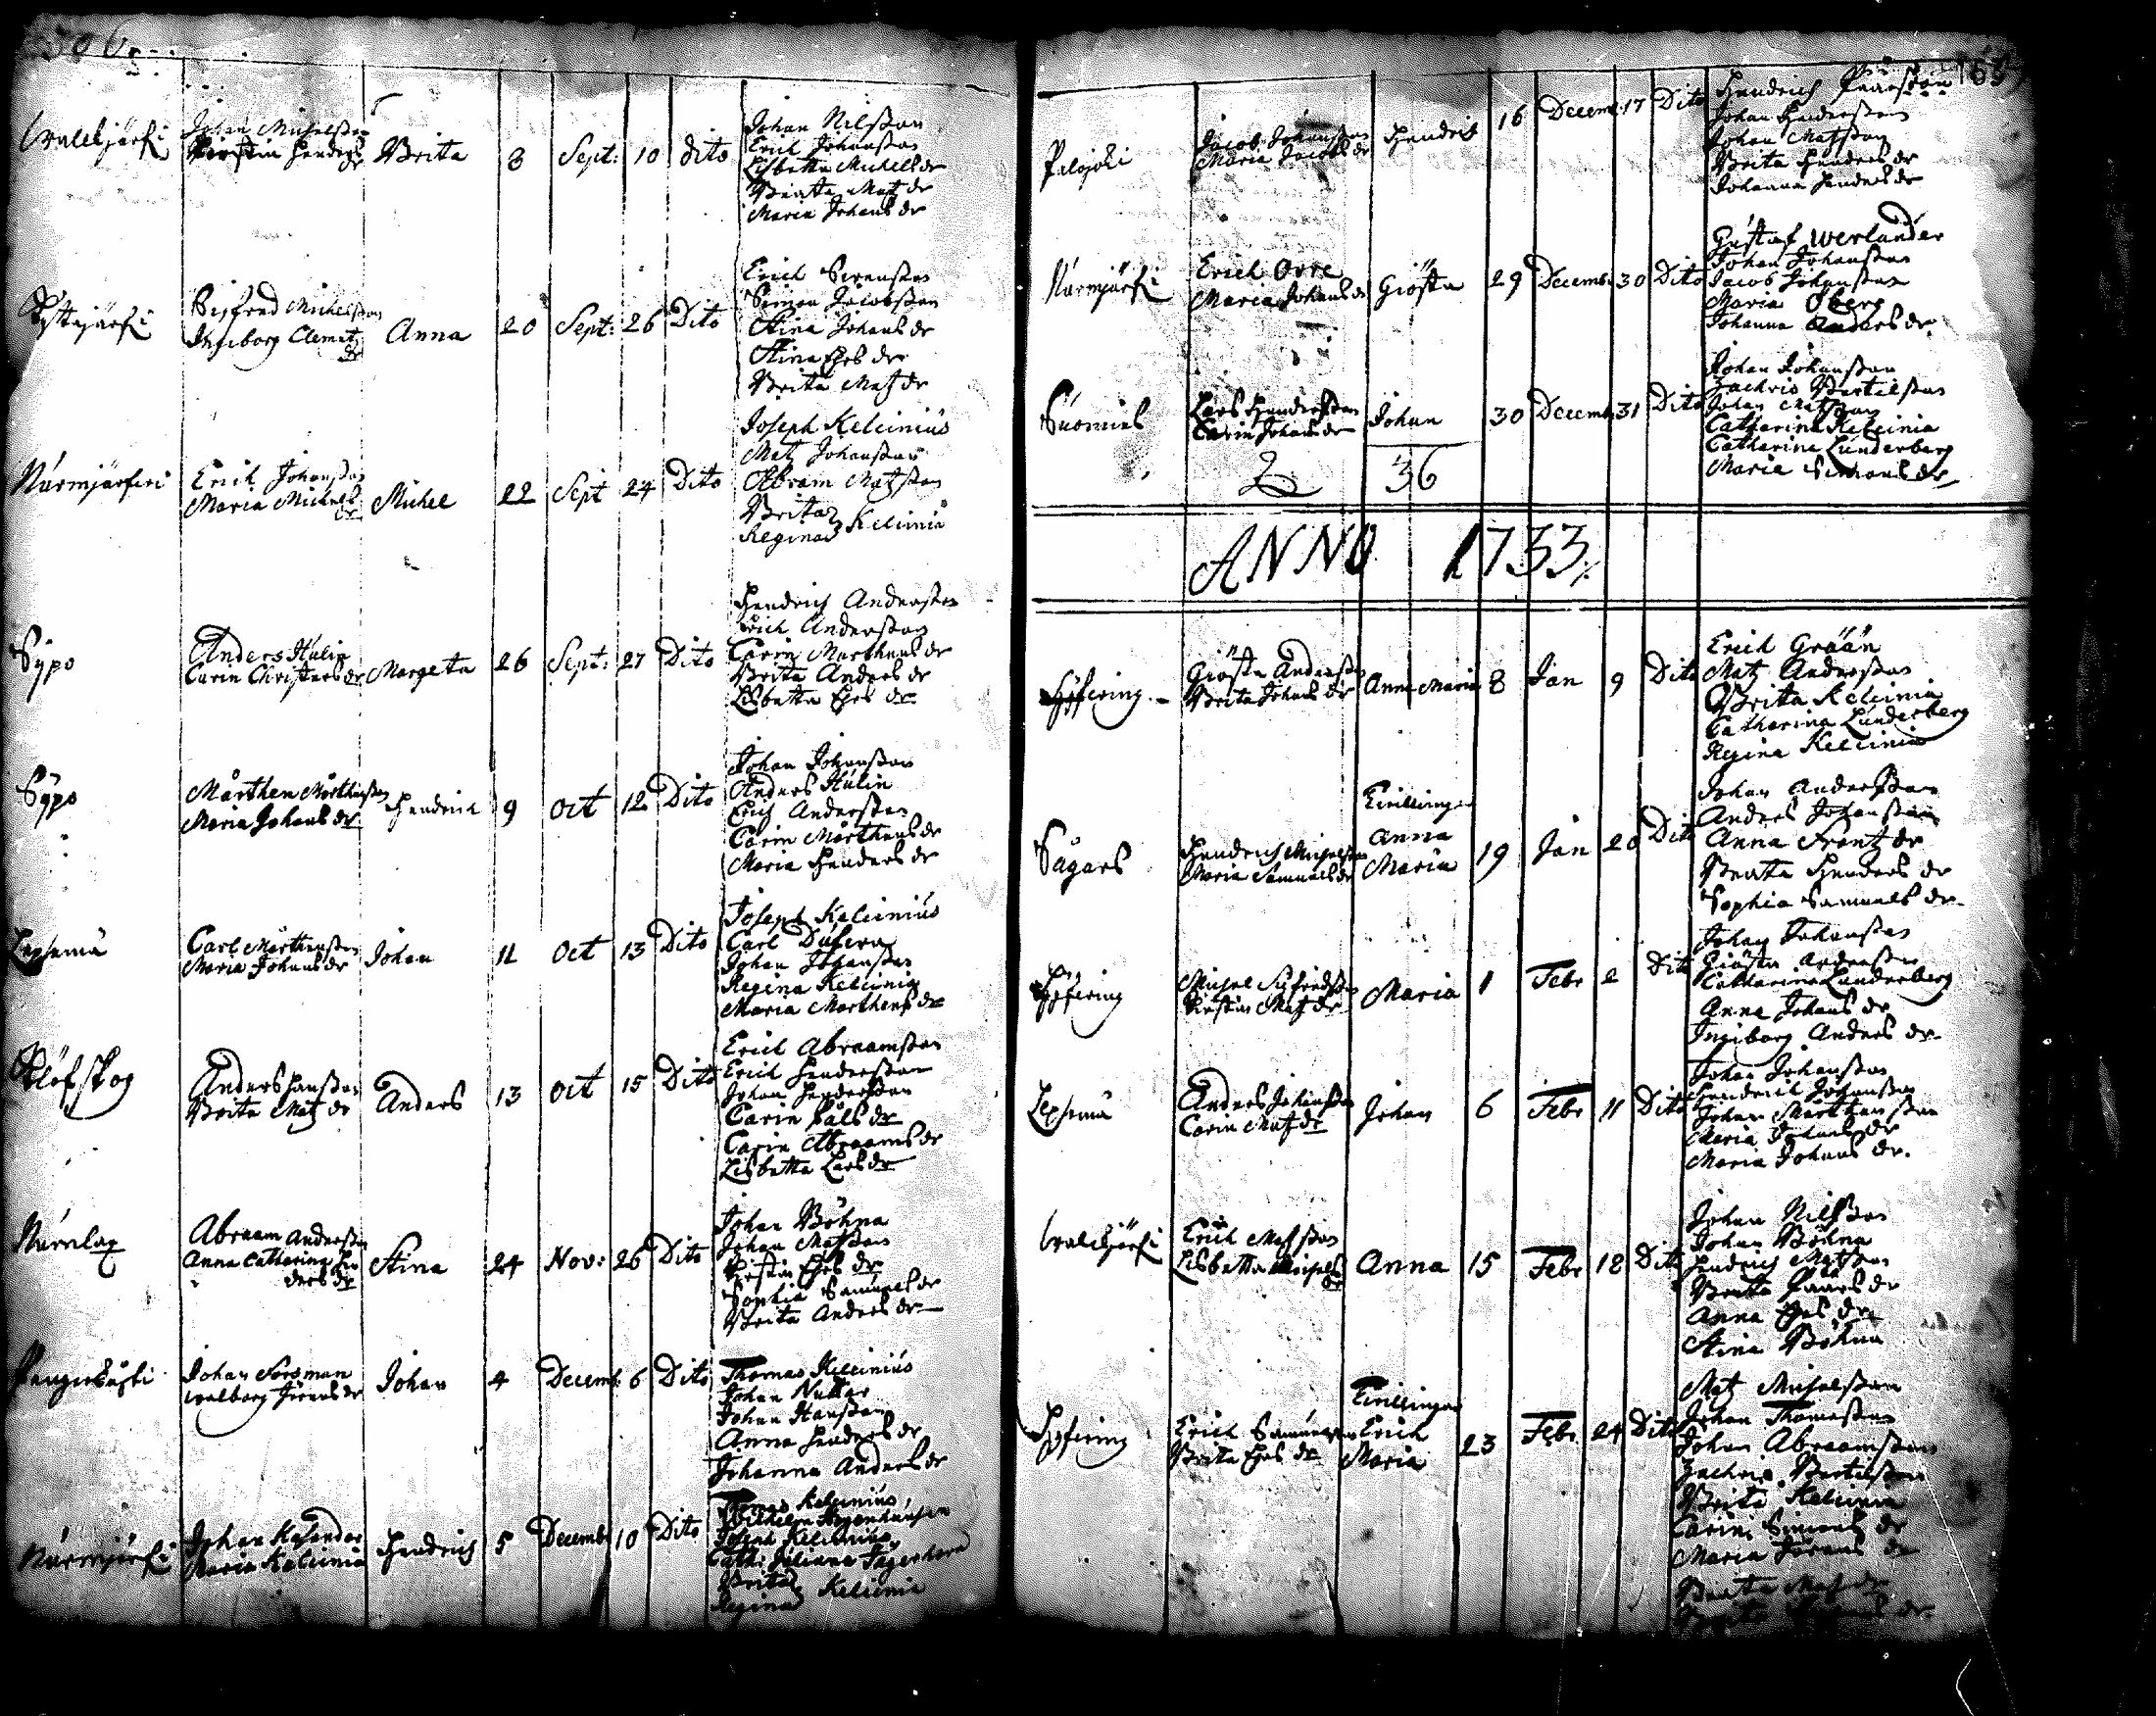 306
Wallkjärfi
Johan Michelsson
Kirstin Hendrs dr
Brita
8
Sept:
10
dito
Johan Nilsson
Erich Johansson
Lisbetta Michels dr
Beata Matz dr
Maria Johans dr
Sigfred Michelsson
Ingeborg Clemetz dr
Anna
20
Sept:
26
Dito
Erich Svensson
Simon Jacobsson
Stina Johans dr
Stina Ers dr
Brita Matz dr
Nurmjärferi
Erich Johansson
Maria Michels dr
Michel
22
Sept
24
Dito
Joseph Kelcinius
Matz Johansson
Abram Matzson
Brita
Regina Kelcinia
Sypo
Anders Hulin
Carin Christers dr
Margeta
26
Sept:
27
Dito
Hendrich Andersson
Erich Andersson
Carin Marthens dr
Brita Anders dr
Lisbetta Ers dr
Sypo
Mårthen Mårthensson
Maria Johans dr
Hendrich
9
Oct
12
Dito
Johan Johansson
Anders Hulin
Erich Andersson
Carin Mårthens dr
Maria Henders dr
Lepsemä
Carl Mårthensson
Maria Johans dr
Johan
11
Oct
13
Dito
Joseph Kelcinius
Carl Dufern
Johan Johansson
Regina Kelcinia
Maria Marthens dr
Klöfskog
Anders Hansson
Brita Matz dr
Anders
13
Oct
15
Dito
Erich Abraamsson
Erich Hendersson
Johan Hendersson
Carin Påls dr
Carin Abraams dr
Lisbetta Lars dr
Numlax
Abraam Andersson
Anna Catharina Hen
ders dr
Stina
24
Nov:
26
Dito
Johan Böhna
Johan Matsson
Kirstin Ers dr
Sophia Samuels dr
Brita Anders dr
Johan Forsman
Walborg Jörans dr
Johan
4
Decemb:
6
Dito
Thomas Kelcinius
Johan Nuttar
Johan Hansson
Anna Henders dr
Johanna Anders dr
Nurmjärfi
Johan
Maria Kelcinia
Hendrich
5
Decemb
10
Dito
Thomas Kelcinius
Joseph Kelcinius
Cath: Juliana Fägerhorn
Brita
Regina Kelcinia
Palojoki
Jacob Johansson
Maria Jacobs dr
Hendrich
16
Decemb:
17
Dito
Hendrich Påårsson
Johan Hendersson
Johan Matsson
Brita Henders dr
Johanna Henders dr
Nurmjärfi
Erich Orre
Maria Johans dr
Giösta
29
Decemb
30
Dito
Gustaf Werlander
Johan Johansson
Jacob Johansson
Maria Öberg
Johanna Anders dr
Lars Hendersson
Carin Johans dr
Johan
30
Decemb
31
Dito
Johan Johansson
Zachris Bertelsson
Johan Matsson
Catharina Kelcinia
Catharina Lunderberg
Maria Simons dr
36
ANNO 1733
Hyfering
Giösta Andersson
Brita Johans dr
Anna Maria
8
Jan
9
Dito
Erich Grään
Matz Andersson
Brita Kelcinia
Catharina Lunderberg
Regina Kelcinia
Sågars
Hendrich Michelsson
Maria Samuels dr
Tvillingar
Anna
Maria
19
Jan
20
Dito
Johan Andersson
Anders Johansson
Anna Frantz dr
Beata Henders dr
Sophia Samuels dr
Hyfering
Michel Sigfredsson
Kirstin Matz dr
Maria
1
Febr
2
Dito
Johan Johansson
Giösta Andersson
Catharina Lunderberg
Anna Johans dr
Ingiborg Anders dr
Lepsemä
Anders Johansson
Carin Matz dr
Johan
6
Febr
11
Dito
Johan Johansson
Hendrich Johansson
Johan Marthensson
Maria Johans dr
Maria Johans dr.
Walckjärfi
Erich Matsson
Lisbetta Michels dr
Anna
15
Febr
18
Dito
Johan Nilsson
Johan Böhna
Hendrich Matsson
Brita Påårs dr
Anna Ers dr
Stina Böhna
Hyfering
Erich Samuelsson
Brita Ers dr
Tvillingar
Erich
Maria
23
Febr
24
Dito
Matz Michelsson
Johan Thomasson
Johan Abraamsson
Zachris Bertelsson
Brita Kelcinia
Carin Simons dr
Maria Jörans dr
Beata Matz dr